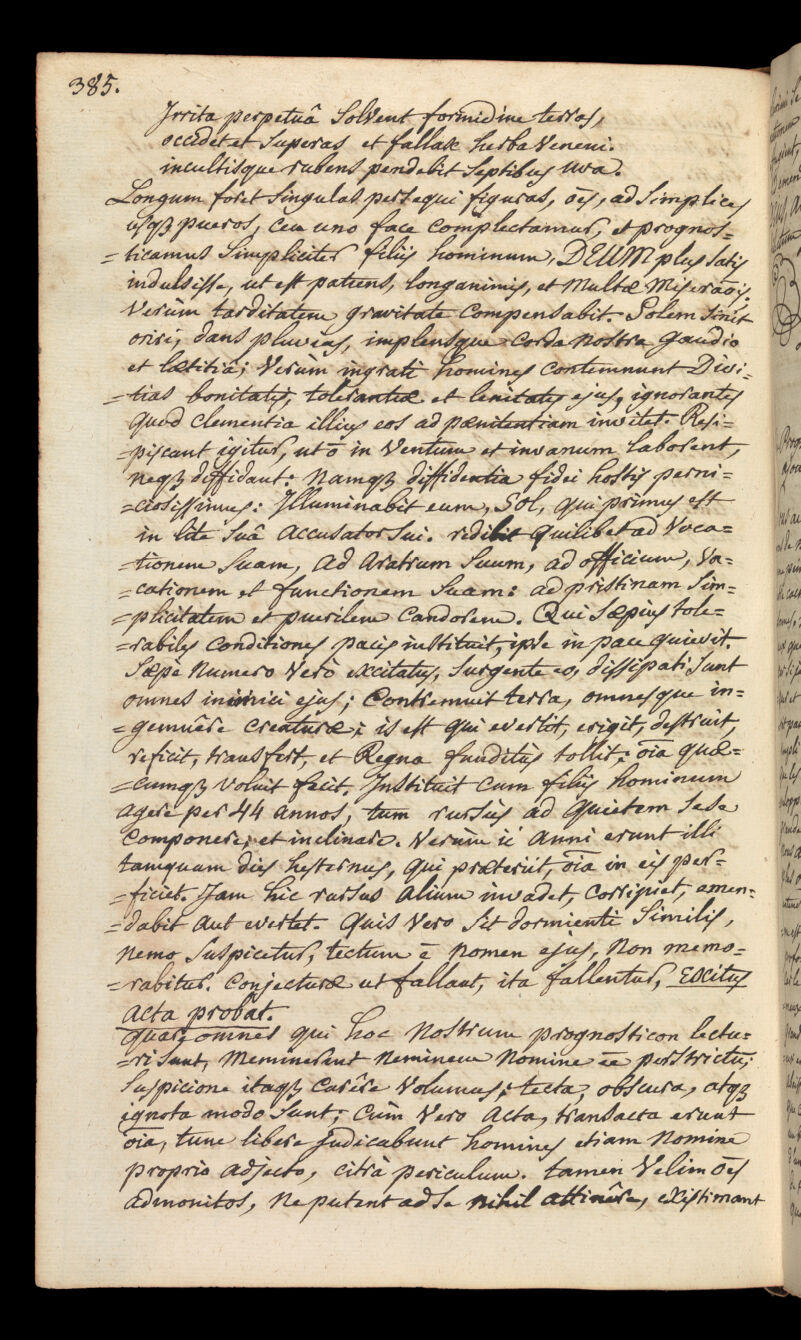 385.
Irrita perpetuâ Solvent formidine terras,
occidet et Superas et fallax herba Veneni.
incultisque rubens pendebit Septibus uva.
Longum foret Singulas persequi figuras, oēs, ad Simplices
usqȝ pueros, ceu uno face complectamur, et prognos=
=ticamus Simpliciter filijs hominum, DEUM plus Satis
indulsisse, ut est patiens, longanimis, et Multæ Miserãois.
Verùm tarditatem gravitate compensabit. Solem Sinit
oriri, dans pluvias, implensque corda nostra gaudio
et lætitia; Verùm ingrati homines contemnunt Divi=
=tias bonitatis, tolerantiæ et lenitatis ejus, ignorantes
quod Clementia illius eos ad pænitentiam invitet. Resi=
=piscant igitur, ut ō in Ventum et invanum laborent,
neqȝ diffidant: Namqȝ diffidentia fidei hostis perni=
=ciosissimus: Illuminabit eum, Sol, qui primus est
in lite Suâ accusator Sui. redibit Quilibet ad Voca=
=tionem Suam, ad Aratrum Suum, ad officium, Vo=
=cationem et functionem Suam: ad pristinam Sim=
=plicitatem et puerilem Candorem. Qui Sæpius tole=
=rabiles Conditiones pacis instituit, ipse in pace quievit.
Sæpè Numero Verò excitatus, Surgente eo, dissipati Sunt
omnes inimici ejus; Contremuit terra, omnesque in=
=gemuêre Creaturæ; is est qui evertit, erigit, destruit,
reficit, transfert, et Regna funditùs tollit; oīa quæ=
=cumqȝ Voluit fecit. Instituit cum filijs hominum
agere per 44 annos, tum rursùs ad Quietem Sese
Componere, et inclinare. Verùm ii Anni erunt illi
tamquam dies hesternus, qui præterijt, oīa in eis per=
=ficiet. Jam hic rursus alium invadet, Corripiet, emen=
=dabit aut evertet. Quis Vero Sit dormienti Similis,
nemo Suspicetur, tectum ē nomen ejus, Non memo=
=rabitur. Conjecturæ ut fallant, ita fallentur, Excitus
acta probat.
Quare omnes qui hoc Nostrum prognosticon lectu=
=ri Sunt, Meminerint Neminem Nomine ēē perstrictū;
Suspicione itaqȝ carêre Volumus; tecta, obscura, atqȝ
ignota modo Sunt; Cùm Vero Acta, transacta erunt
oīa, tunc libere Judicabunt homines etiam Nomine
proprio adjecto, citrà periculum. tamen Velim oēs
admonitos, Ne putent ad Se nihil attinêre, existimant